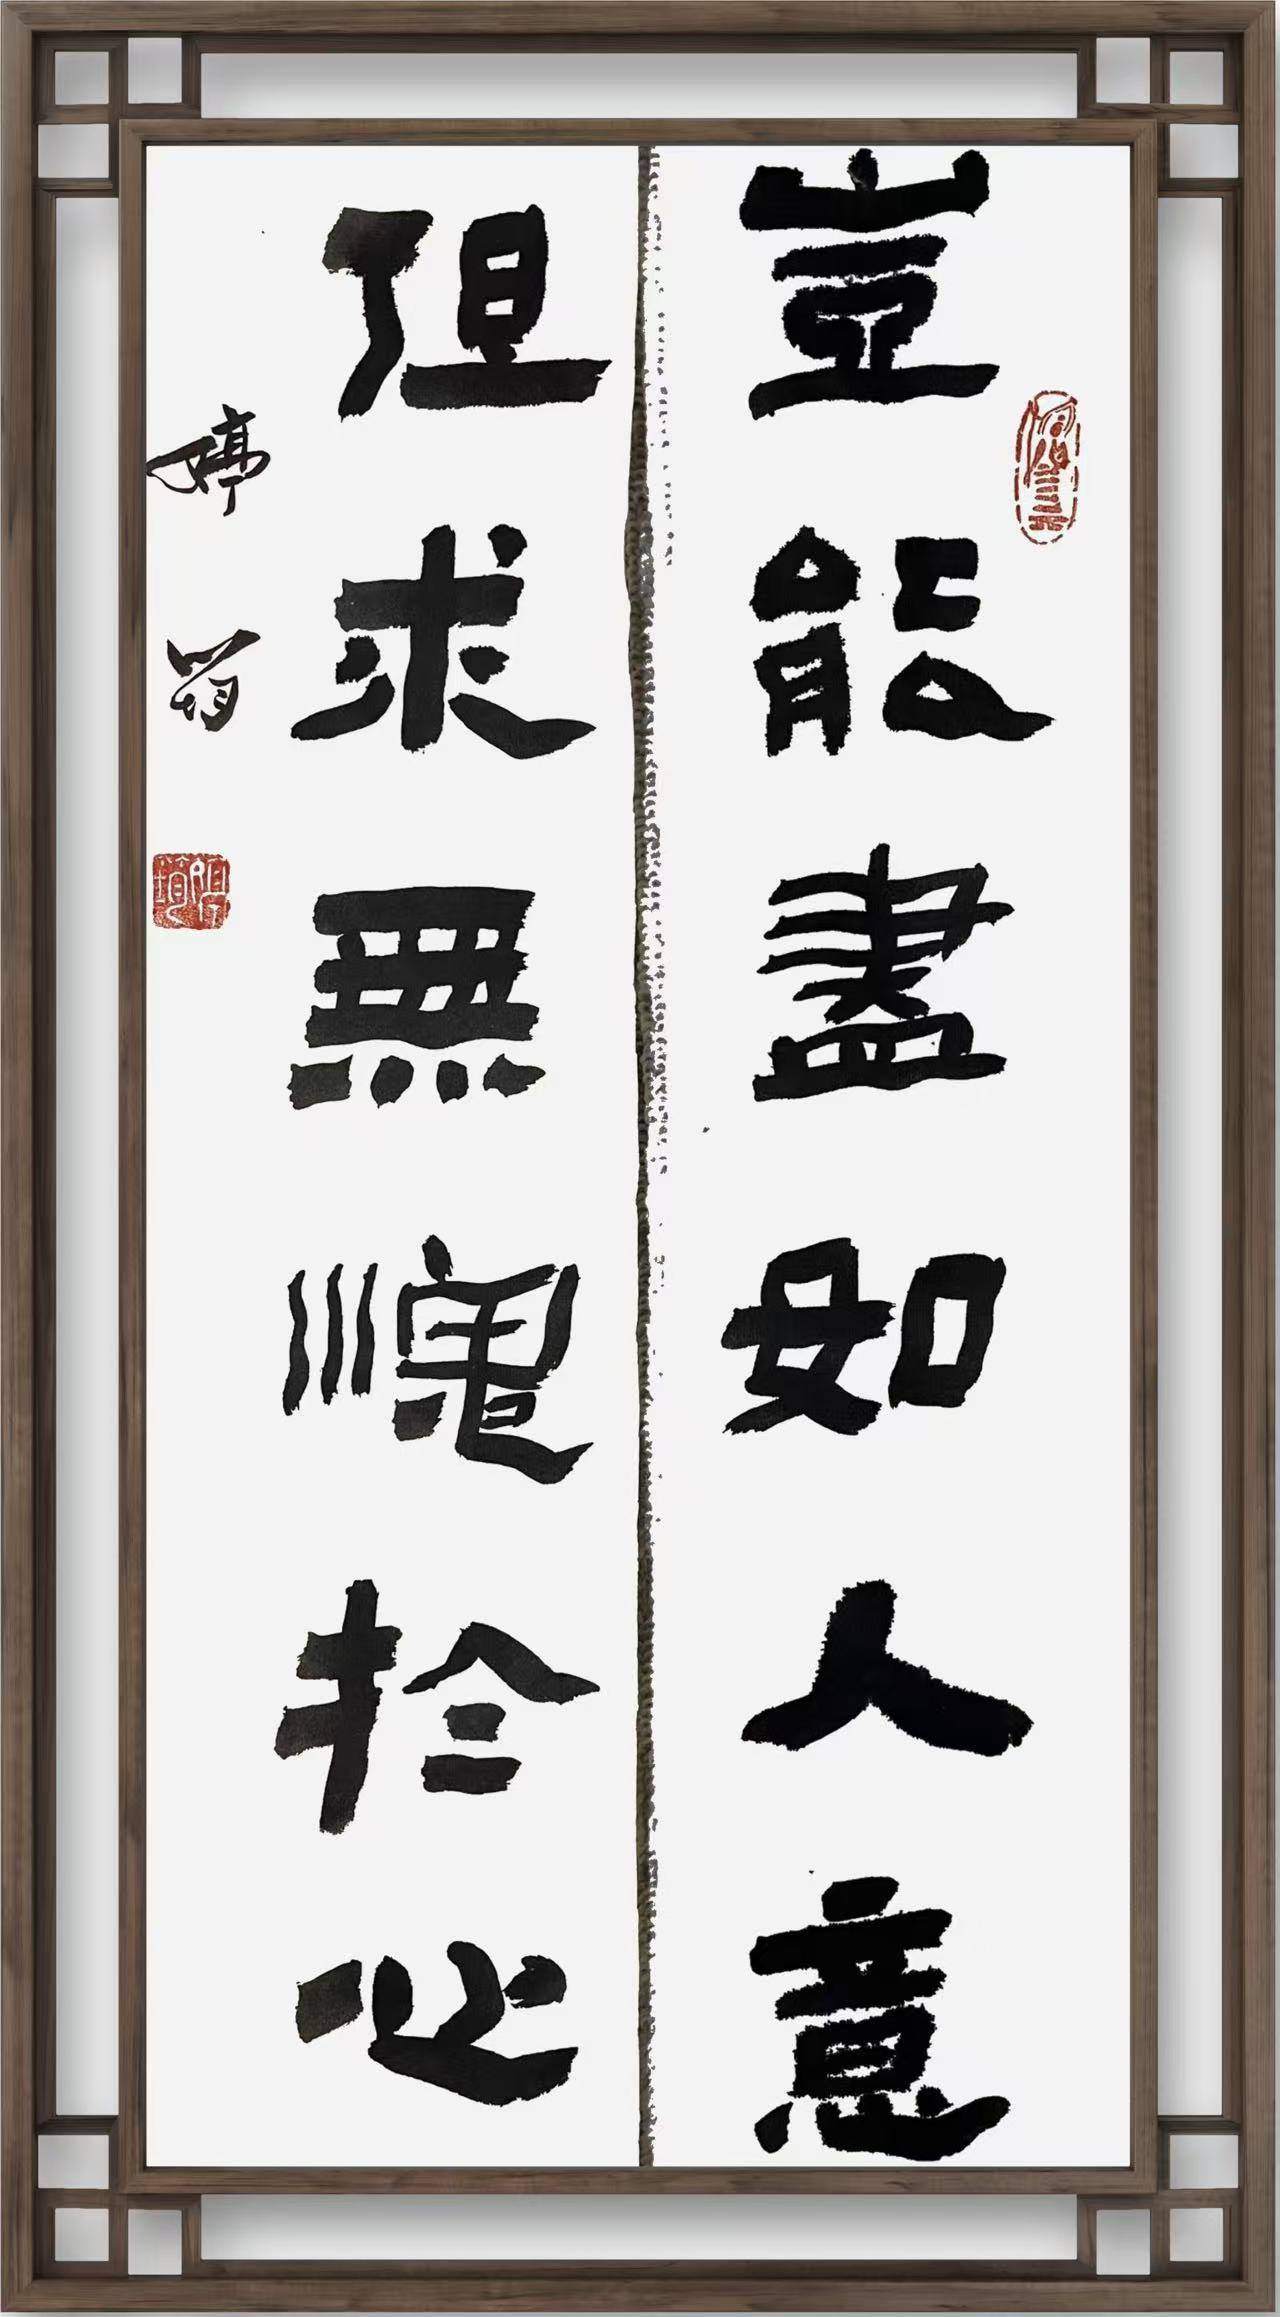 豈能盡如人意
但求無愧於心
婷筠